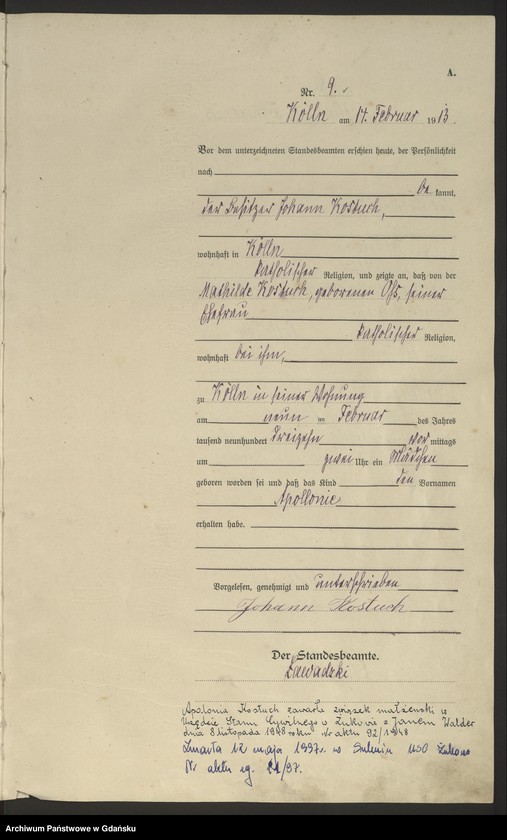 A.
Nr. 9.
Kölln am 14. Februar 1913.
Vor dem unterzeichneten Standesbeamten erschien heute, der Persönlichkeit
nach
be kannt,
der Besitzer Johann Kostuch,
wohnhaft in Kölln
katholischer Religion, und zeigte an, daß von der
Mathilde Kostuch, geborenen Ohs, seiner
Ehefrau
katholischer Religion,
wohnhaft bei ihm,
zu Kölln in seiner Wohnung
am neun ten Februar des Jahres
tausend neunhundert dreizehn vor mittags
um zwei Uhr ein Mädchen
geboren worden sei und daß das Kind den Vornamen
Apollonie
erhalten habe.
Vorgelesen, genehmigt und unterschrieben
Johann Kostuch
Der Standesbeamte.
Zawadzki
Apolonia Kostuch zawarła związek małżeński w
Urzędzie Stanu Cywilnego w Żukowie z Janem Walder
dnia 8 listopada 1948 roku Nr aktu 92/1948
Zmarła 12 maja 1997r. w USC Żukowo
Nr aktu zg. 21/97.
Archiwum Państwowe w Gdańsku